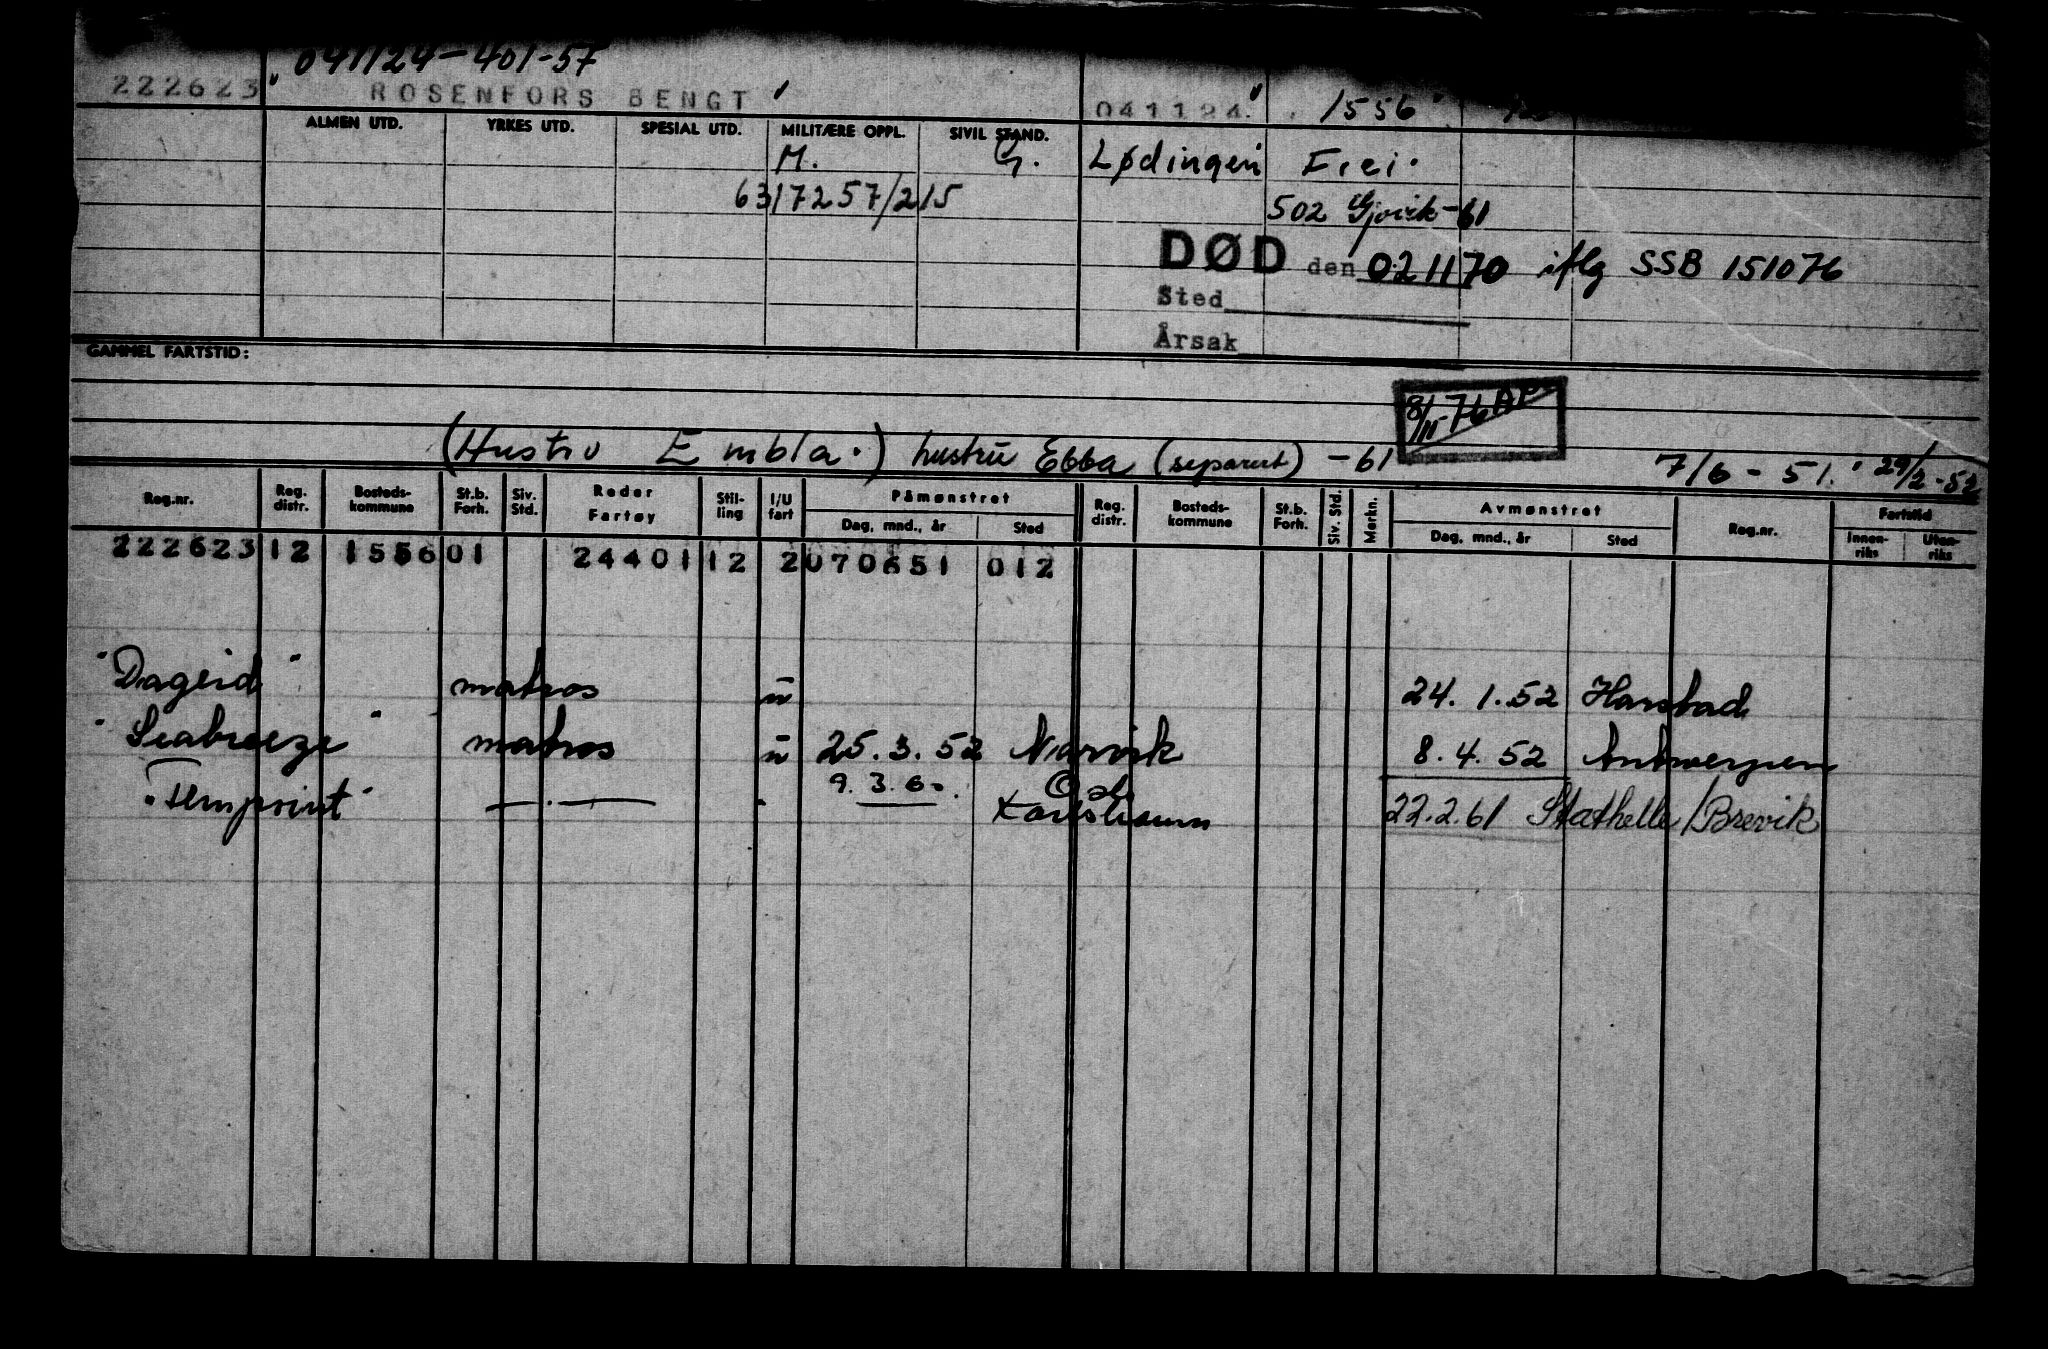 041124-401-57
222623 ROSENFORS BENGT 041124. 1556
ALMEN UTD. YRKES UTD. SPESIAL UTD. MILITÆRE OPPL. SIVIL STAND.
M. G. Lødingen Frei.
6317257/215 502 Gjøvik-61
DØD den 021170 iflg SSB 151076
Sted
Årsak
GAMMEL FARTSTID:
8/11-76
(Hustru Embla.) hustru Ebba (separert) -61 7/6-51. 29/2-52
Reg.nr. Reg. distr. Bosteds-kommune St.b. Forh. Siv. Std. Reder Fartøy Stil-ling I/U fart Påmønstret Dag, mnd., år Sted Reg. distr. Bosteds-kommune St.b. Forh. Siv. Std. Merkn. Avmønstret Dag, mnd., år Sted Reg.nr. Fartstid Innen-riks Uten-riks
222623 12 1556 01 24401 12 2 070651 012
"Dageid" matros u 24.1.52 Harstad
"Seabreeze" matros u 25.3.52 Narvik 8.4.52 Antwerpen
9.3.60. Oslo
"Fernpoint" — . — Karlshamn 22.2.61 Stathelle/Brevik